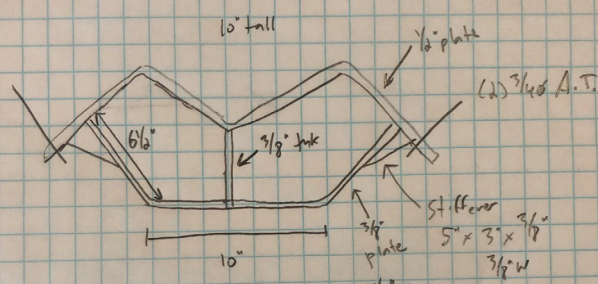 10" tall
1/2" plate
(2) 3/4ø A.T.
6 1/2"
3/8" thk
Stiffener
5" x 3" x 3/8"
3/8" W
3/8"
plate
10"